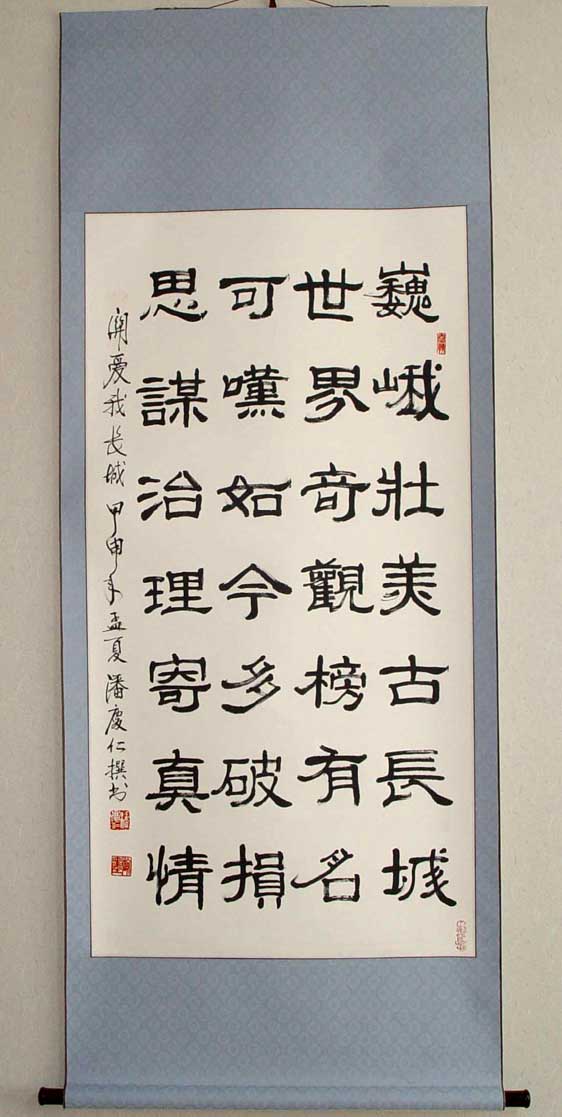 巍峨壯美古長城
世界奇觀榜有名
可嘆如今多破損
思謀治理寄真情
關爱我长城 甲申年孟夏 潘慶仁撰书